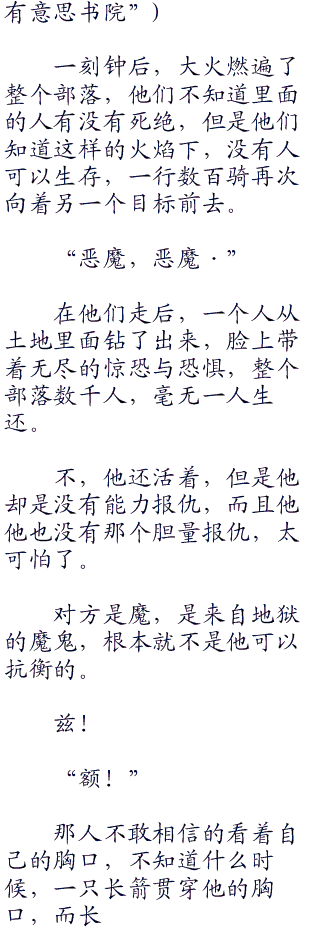 有意思书院”）
一刻钟后，大火燃遍了
整个部落，他们不知道里面
的人有没有死绝，但是他们
知道这样的火焰下，没有人
可以生存，一行数百骑再次
向着另一个目标前去。
“恶魔，恶魔·”
在他们走后，一个人从
土地里面钻了出来，脸上带
着无尽的惊恐与恐惧，整个
部落数千人，毫无一人生
还。
不，他还活着，但是他
却是没有能力报仇，而且他
他也没有那个胆量报仇，太
可怕了。
对方是魔，是来自地狱
的魔鬼，根本就不是他可以
抗衡的。
兹！
“额！”
那人不敢相信的看着自
己的胸口，不知道什么时
候，一只长箭贯穿他的胸
口，而长